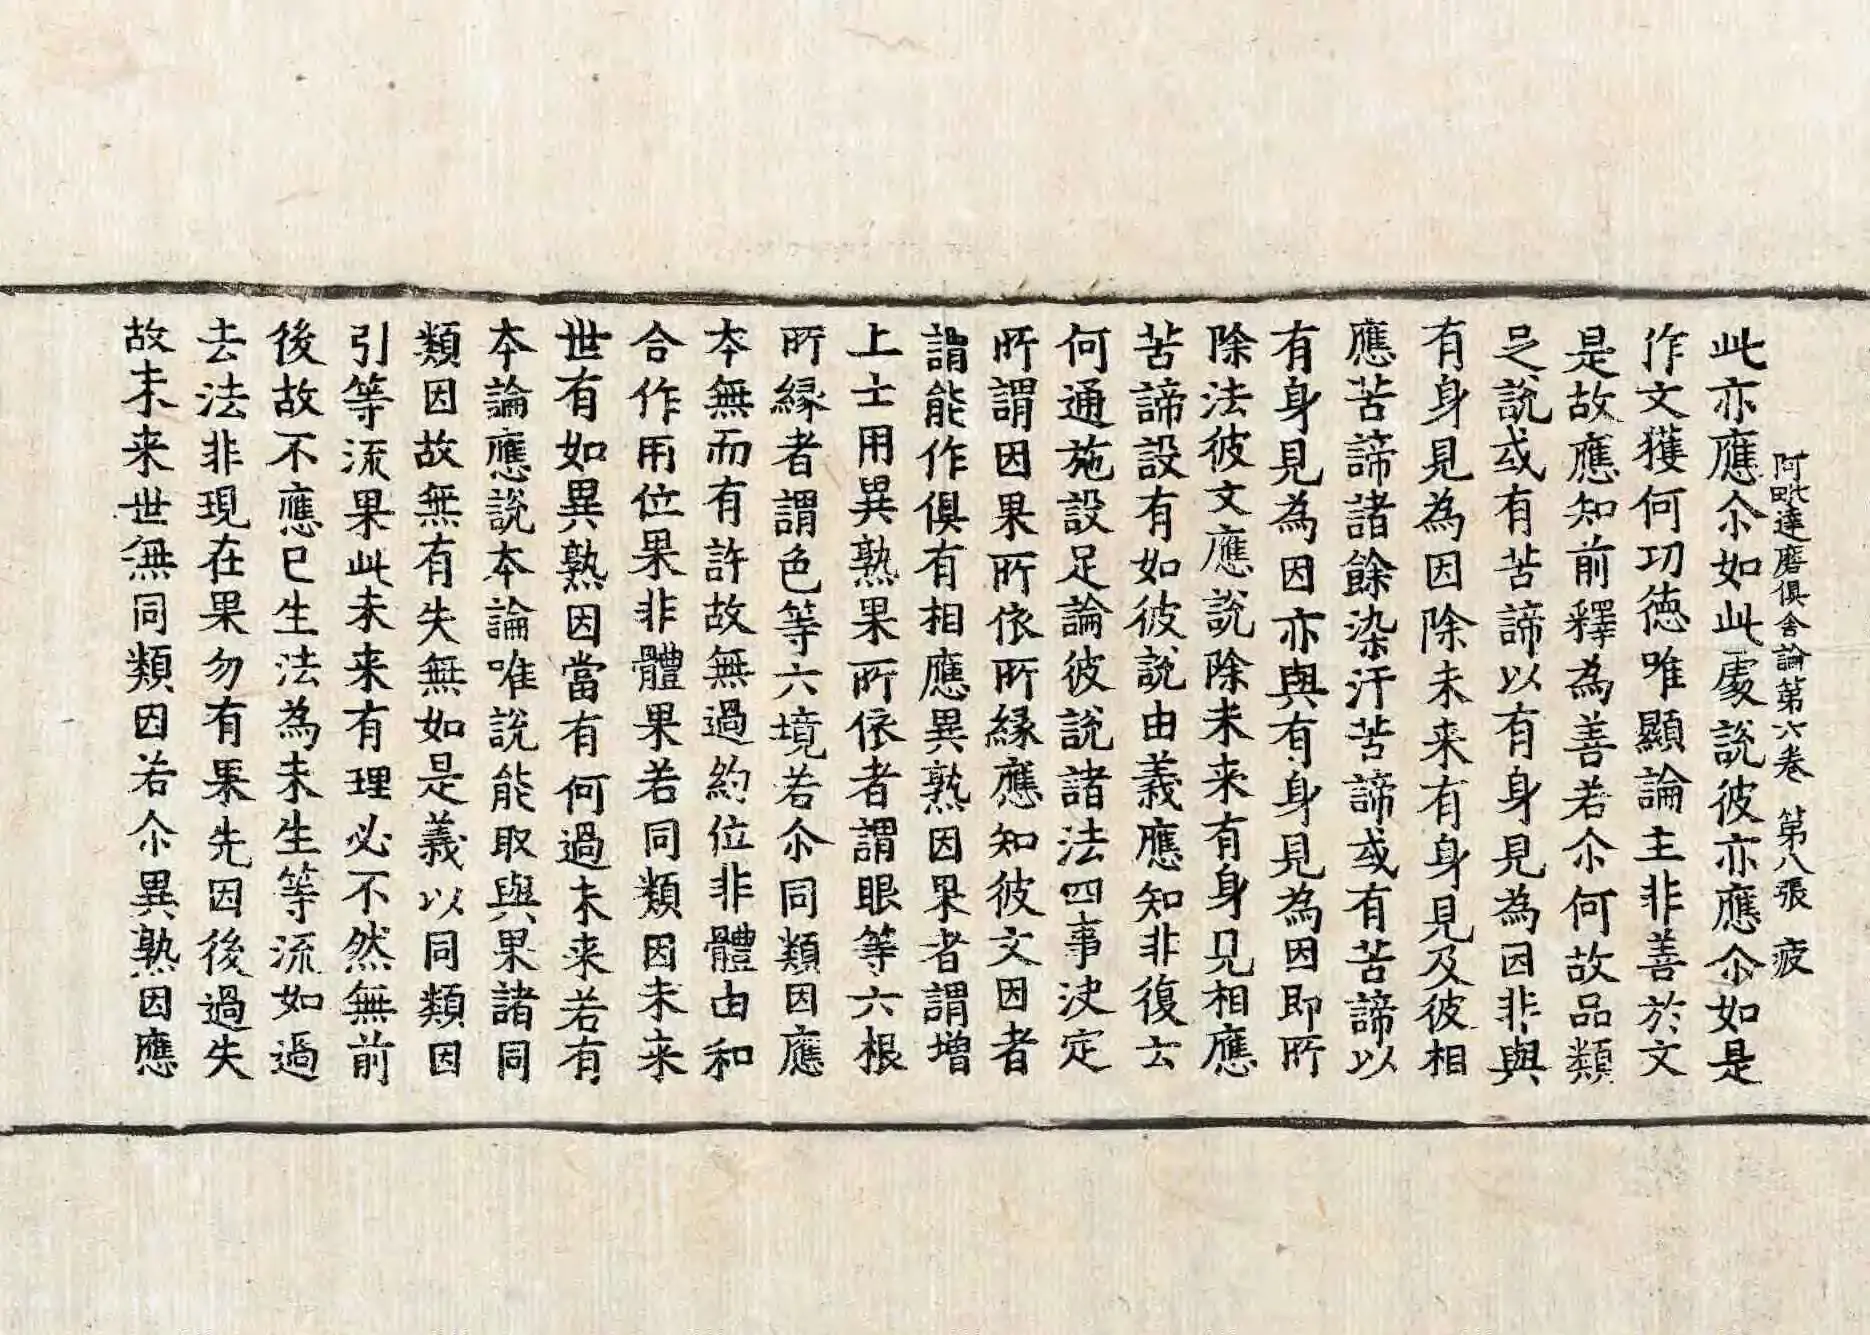 阿毗達磨俱舍論第六卷 第八張 疲
此亦應尒如此處說彼亦應尒如是
作文獲何功德唯顯論主非善於文
是故應知前釋為善若尒何故品類
足說或有苦諦以有身見為因非與
有身見為因除未来有身見及彼相
應苦諦諸餘染汙苦諦或有苦諦以
有身見為因亦與有身見為因即所
除法彼文應說除未来有身見相應
苦諦設有如彼說由義應知非復云
何通施設足論彼說諸法四事決定
所謂因果所依所緣應知彼文因者
謂能作俱有相應異熟因果者謂增
上士用異熟果所依者謂眼等六根
所緣者謂色等六境若尒同類因應
本無而有許故無過約位非體由和
合作用位果非體果若同類因未来
世有如異熟因當有何過未来若有
本論應說本論唯說能取與果諸同
類因故無有失無如是義以同類因
引等流果此未来有理必不然無前
後故不應已生法為未生等流如過
去法非現在果勿有果先因後過失
故未来世無同類因若尒異熟因應